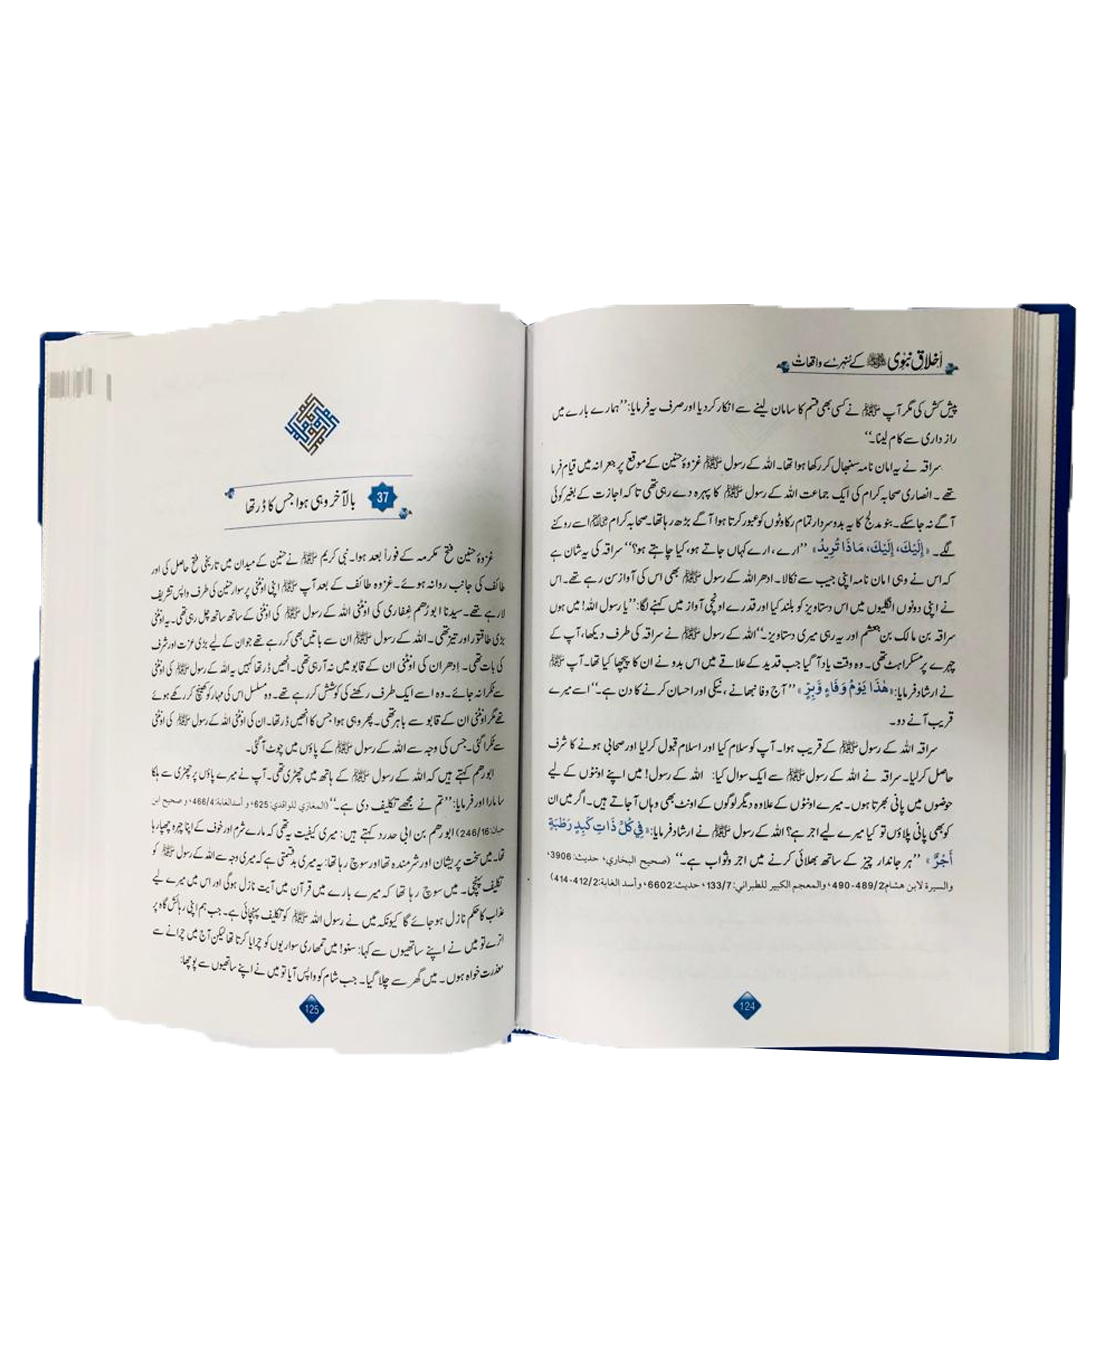 اَخلاقِ نبوی ﷺ کے سنہرے واقعات
پیش کش کی مگر آپ ﷺ نے کسی بھی قسم کا سامان لینے سے انکار کر دیا اور صرف یہ فرمایا: ’’ہمارے بارے میں
راز داری سے کام لینا۔‘‘
سراقہ نے یہ امان نامہ سنبھال کر رکھا ہوا تھا۔ اللہ کے رسول ﷺ غزوۂ حنین کے موقع پر جعرانہ میں قیام فرما
تھے۔ انصاری صحابہ کرام کی ایک جماعت اللہ کے رسول ﷺ کا پہرہ دے رہی تھی تاکہ اجازت کے بغیر کوئی
آگے نہ جا سکے۔ بنو مدلج کا یہ بدو سردار تمام رکاوٹوں کو عبور کرتا ہوا آگے بڑھ رہا تھا۔ صحابہ کرام اسے روکنے
لگے۔ «إِلَيْكَ، إِلَيْكَ، مَاذَا تُرِيدُ» ’’ارے، ارے کہاں جاتے ہو، کیا چاہتے ہو؟‘‘ سراقہ کی یہ شان ہے
کہ اس نے وہی امان نامہ اپنی جیب سے نکالا۔ ادھر اللہ کے رسول ﷺ بھی اس کی آواز سن رہے تھے۔ اس
نے اپنی دونوں انگلیوں میں اس دستاویز کو بلند کیا اور قدرے اونچی آواز میں کہنے لگا: ’’یا رسول اللہ! میں ہوں
سراقہ بن مالک بن جعشم اور یہ رہی میری دستاویز۔‘‘ اللہ کے رسول ﷺ نے سراقہ کی طرف دیکھا، آپ کے
چہرے پر مسکراہٹ تھی۔ وہ وقت یاد آ گیا جب قدید کے علاقے میں اس بدو نے ان کا پیچھا کیا تھا۔ آپ ﷺ
نے ارشاد فرمایا: «هٰذَا يَوْمُ وَفَاءٍ وَّبِرٍّ» ’’آج وفا نبھانے، نیکی اور احسان کرنے کا دن ہے۔‘‘ اسے میرے
قریب آنے دو۔
سراقہ اللہ کے رسول ﷺ کے قریب ہوا۔ آپ کو سلام کیا اور اسلام قبول کر لیا اور صحابی ہونے کا شرف
حاصل کر لیا۔ سراقہ نے اللہ کے رسول ﷺ سے ایک سوال کیا: اللہ کے رسول! میں اپنے اونٹوں کے لیے
حوضوں میں پانی بھرتا ہوں۔ میرے اونٹوں کے علاوہ دیگر لوگوں کے اونٹ بھی وہاں آ جاتے ہیں۔ اگر میں ان
کو بھی پانی پلاؤں تو کیا میرے لیے اجر ہے؟ اللہ کے رسول ﷺ نے ارشاد فرمایا: «فِي كُلِّ ذَاتِ كَبِدٍ رَطْبَةٍ
أَجْرٌ» ’’ہر جاندار چیز کے ساتھ بھلائی کرنے میں اجر و ثواب ہے۔‘‘ (صحيح البخاري، حديث: 3906،
والسيرة لابن هشام: 489/2-490، والمعجم الكبير للطبراني: 133/7، حديث: 6602، وأسد الغابة: 412/2-414)
124
37 بالآخر وہی ہوا جس کا ڈر تھا
غزوۂ حنین فتح مکرمہ کے فوراً بعد ہوا۔ نبی کریم ﷺ نے حنین کے میدان میں تاریخی فتح حاصل کی اور
طائف کی جانب روانہ ہوئے۔ غزوہ طائف کے بعد آپ ﷺ اپنی اونٹنی پر سوار حنین کی طرف واپس تشریف
لا رہے تھے۔ سیدنا ابو رُھم غِفاری کی اونٹنی اللہ کے رسول ﷺ کی اونٹنی کے ساتھ ساتھ چل رہی تھی۔ یہ اونٹنی
بڑی طاقتور اور تیز تھی۔ اللہ کے رسول ﷺ ان سے باتیں بھی کر رہے تھے جو ان کے لیے بڑی عزت اور شرف
کی بات تھی۔ اِدھر ان کی اونٹنی ان کے قابو میں نہ آ رہی تھی۔ انھیں ڈر تھا کہیں یہ اللہ کے رسول ﷺ کی اونٹنی
سے ٹکرا نہ جائے۔ وہ اسے ایک طرف رکھنے کی کوشش کر رہے تھے۔ وہ مسلسل اس کی مہار کو کھینچ کر رکھے ہوئے
تھے مگر اونٹنی ان کے قابو سے باہر تھی۔ پھر وہی ہوا جس کا انھیں ڈر تھا۔ ان کی اونٹنی اللہ کے رسول ﷺ کی اونٹنی
سے ٹکرا گئی۔ جس کی وجہ سے اللہ کے رسول ﷺ کے پاؤں میں چوٹ آ گئی۔
ابو رھم کہتے ہیں کہ اللہ کے رسول ﷺ کے ہاتھ میں چھڑی تھی۔ آپ نے میرے پاؤں پر چھڑی سے ہلکا
سا مارا اور فرمایا: ’’تم نے مجھے تکلیف دی ہے۔‘‘ (المغازي للواقدي: 625، وأسد الغابة: 466/4، و صحيح ابن
حبان: 246/16) ابو رھم بن ابی حدرد کہتے ہیں: میری کیفیت یہ تھی کہ مارے شرم اور خوف کے اپنا چہرہ چھپا رہا
تھا۔ میں سخت پریشان اور شرمندہ تھا اور سوچ رہا تھا: یہ میری بدقسمتی ہے کہ میری وجہ سے اللہ کے رسول ﷺ کو
تکلیف پہنچی۔ میں سوچ رہا تھا کہ میرے بارے میں قرآن میں آیت نازل ہوگی اور اس میں میرے لیے
عذاب کا حکم نازل ہو جائے گا کیونکہ میں نے رسول اللہ ﷺ کو تکلیف پہنچائی ہے۔ جب ہم اپنی رہائش گاہ پر
اترے تو میں نے اپنے ساتھیوں سے کہا: سنو! میں تمھاری سواریوں کو چرایا کرتا تھا لیکن آج میں چرانے سے
معذرت خواہ ہوں۔ میں گھر سے چلا گیا۔ جب شام کو واپس آیا تو میں نے اپنے ساتھیوں سے پوچھا:
125